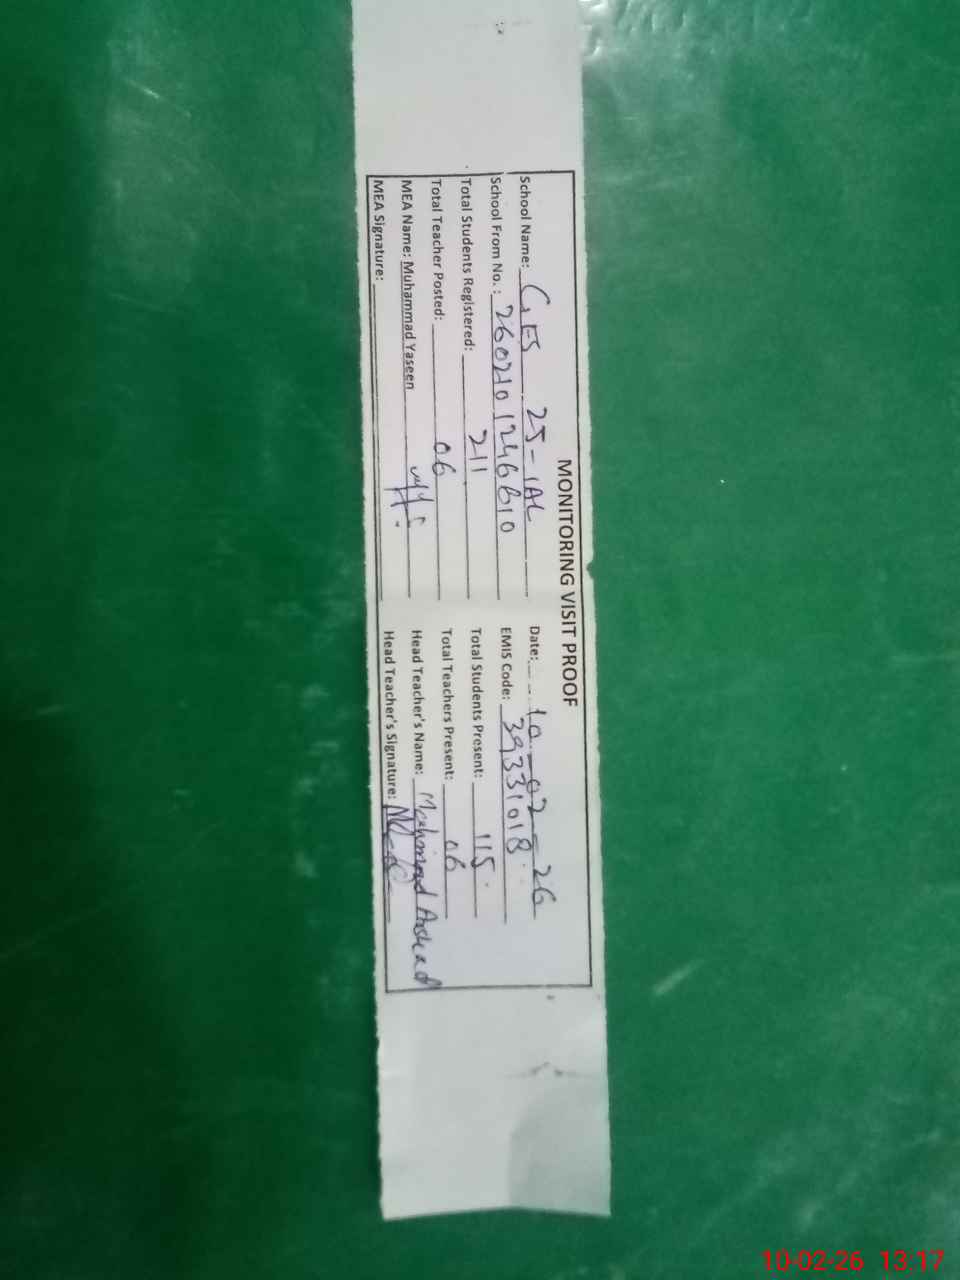 MONITORING VISIT PROOF
School Name: GES 25-1AL Date: 10-02-26
School From No.: 2602101246610 EMIS Code: 39331018
Total Students Registered: 211 Total Students Present: 115
Total Teacher Posted: 06 Total Teachers Present: 06
MEA Name: Muhammad Yaseen Head Teacher's Name: Arshad
MEA Signature: Head Teacher's Signature:
10-02-26 13:17